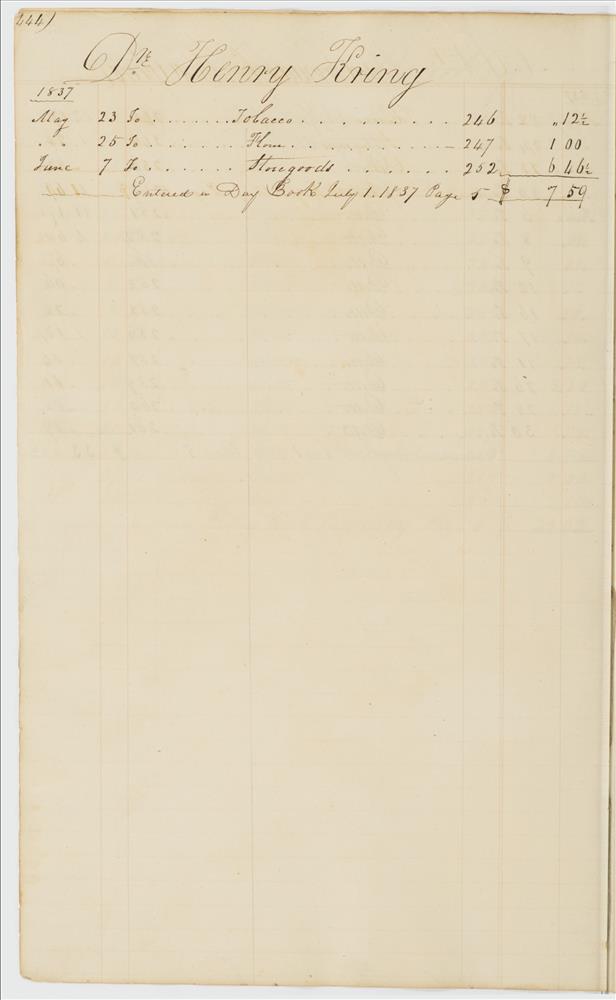 244)
Dr. Henry Kring
1837
May 23 To . . . . . . . Tobacco . . . . . . . . . . 246 „ 12½
" " 25 To . . . . . . . Flour . . . . . . . . . . 247 1 00
June 7 To . . . . . . . Storegoods . . . . . . . 252 6 46½
Entered in Day Book July 1. 1837 Page 5 $ 7 59